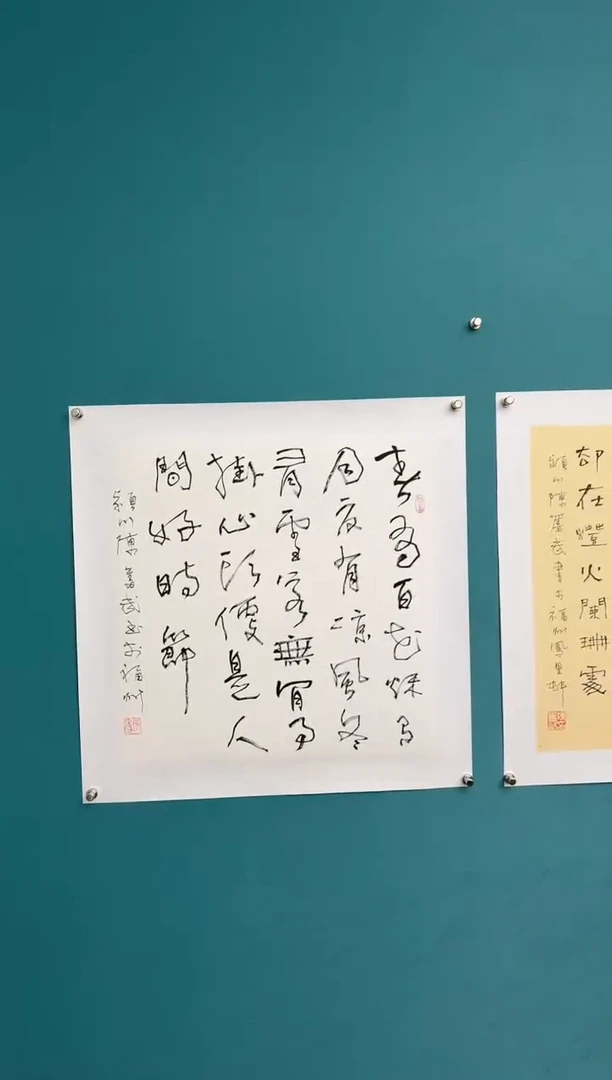 春有百花秋有
月夏有涼風冬
有雪若無閒事
掛心頭便是人
間好時節
潁川陳武書於福州
却在燈火闌珊處
潁川陳武書於福州鳳